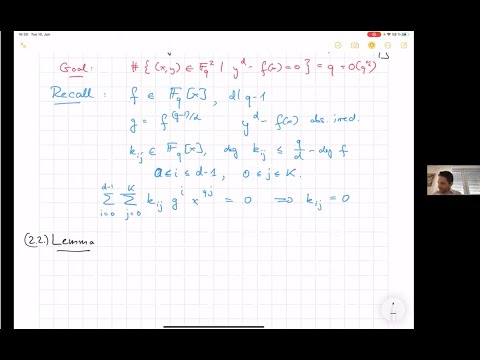 16:30 Tue 15. Jun
Goal: # { (x,y) ∈ 𝔽_q^2 | y^d - f(x) = 0 } = q + O(q^½)
Recall: f ∈ 𝔽_q [x], d | q-1
g = f^{(q-1)/d} y^d - f(x) abs. irred.
k_{ij} ∈ 𝔽_q [x], deg k_{ij} ≤ q/d - deg f
0 ≤ i ≤ d-1, 0 ≤ j ≤ K.
∑_{i=0}^{d-1} ∑_{j=0}^{K} k_{ij} g^i x^{qj} = 0 ⇒ k_{ij} = 0
(2.2) Lemma